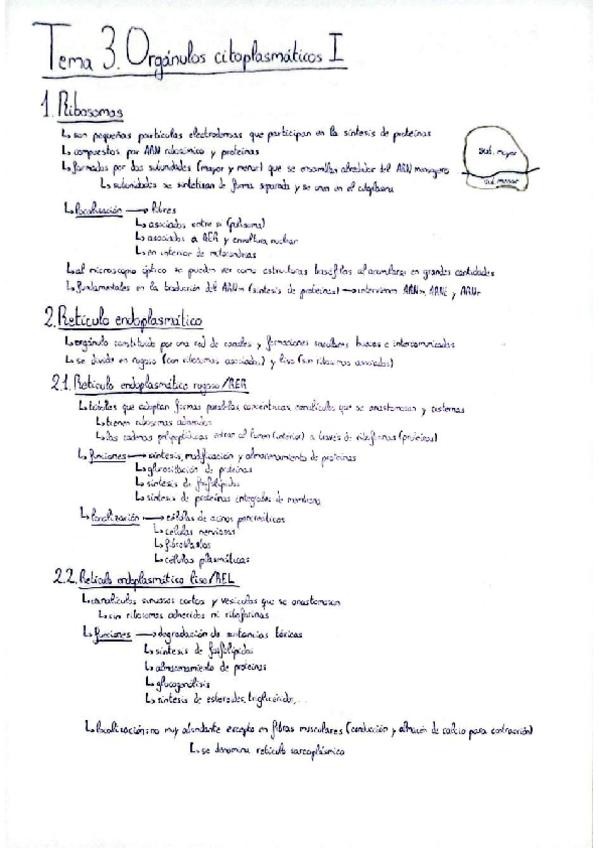 Tema 3. Orgánulos citoplasmáticos I
1. Ribosomas
↳ son pequeñas partículas electrodensas que participan en la síntesis de proteínas
↳ compuestos por ARN ribosómico y proteínas
↳ formados por dos subunidades (mayor y menor) que se ensamblan alrededor del ARN mensajero
↳ subunidades se sintetizan de forma separada y se unen en el citoplasma
sub. mayor
sub. menor
↳ localización → libres
↳ asociados entre sí (polisoma)
↳ asociados a RER y envoltura nuclear
↳ en interior de mitocondrias
↳ al microscopio óptico se pueden ver como estructuras basófilas al acumularse en grandes cantidades
↳ fundamentales en la traducción del ARNm (síntesis de proteínas) → intervienen ARNm, ARNt y ARNr
2. Retículo endoplasmático
↳ orgánulo constituido por una red de canales y formaciones saculares huecos e intercomunicados
↳ se divide en rugoso (con ribosomas asociados) y liso (sin ribosomas asociados)
2.1. Retículo endoplasmático rugoso/RER
↳ túbulos que adoptan formas paralelas concéntricas, canalículos que se anastomosan y cisternas
↳ tienen ribosomas adheridos
↳ las cadenas polipeptídicas entran al lumen (interior) a través de riboforinas (proteínas)
↳ funciones → síntesis, modificación y almacenamiento de proteínas
↳ glucosilación de proteínas
↳ síntesis de fosfolípidos
↳ síntesis de proteínas integrales de membrana
↳ localización → células de acinos pancreáticos
↳ células nerviosas
↳ fibroblastos
↳ células plasmáticas
2.2. Retículo endoplasmático liso/REL
↳ canalículos sinuosos cortos y vesículas que se anastomosan
↳ sin ribosomas adheridos ni riboforinas
↳ funciones → degradación de sustancias tóxicas
↳ síntesis de fosfolípidos
↳ almacenamiento de proteínas
↳ glucogenólisis
↳ síntesis de esteroides, triglicéridos, ...
↳ localización: no muy abundante excepto en fibras musculares (conducción y almacén de calcio para contracción)
↳ se denomina retículo sarcoplásmico